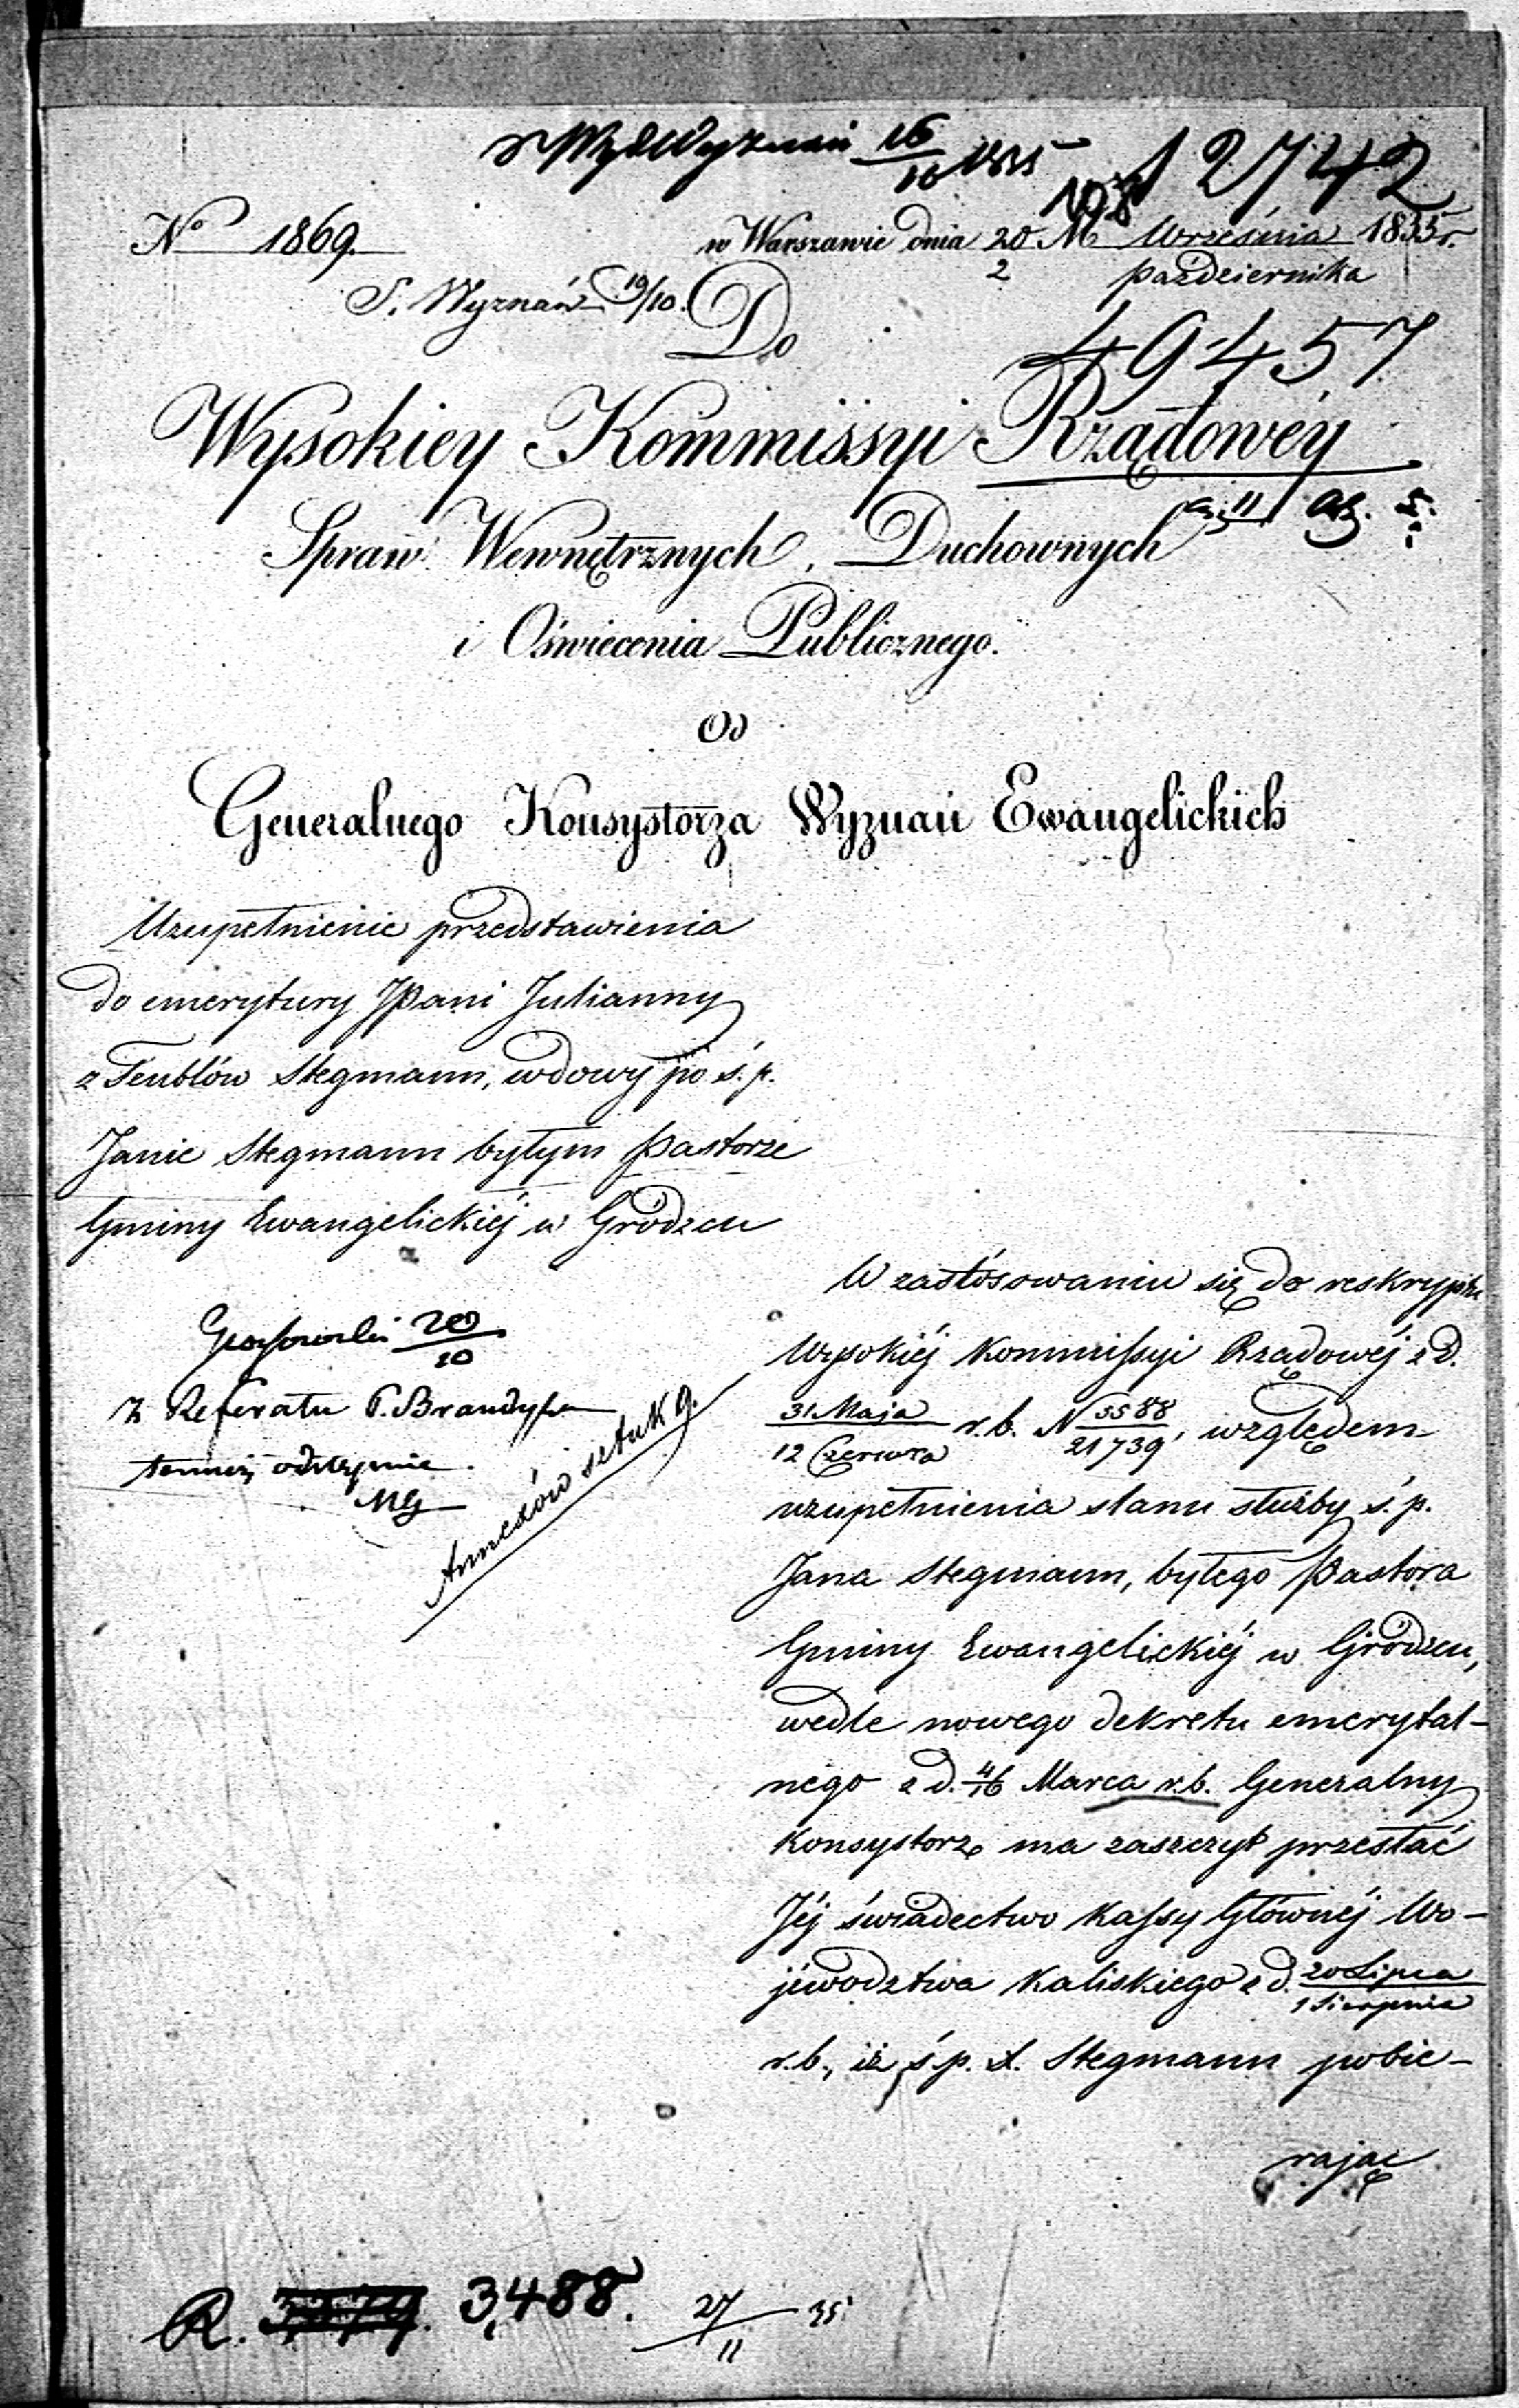 Wyznań 16/10 1835
12742
No 1869.
w Warszawie dnia 20 M Września 1835 r.
2 Października
S. Wyznań 19/10.
Do
49457
Wysokiey Kommissyi Rządowéy
Spraw Wewnętrznych, Duchownych
i Oświecenia Publicznego.
Od
Generalnego Konsystorza Wyznań Ewangelickich
Uzupełnienie przedstawienia
do emerytury JPani Julianny
z Teublów Stegmann, wdowy po ś. p.
Janie Stegmann byłym Pastorze
Gminy Ewangelickiéj w Gródzcu
20/10
Z Referatu P. Brandysa
temuż odstępnie.
MG
Annexów sztuk 9.
W zastósowaniu się do reskryptu
Wysokiéj Kommissyi Rządowéj z d.
31 Maja/12 Czerwca r. b. N 5588/21739, względem
uzupełnienia stanu służby ś. p.
Jana Stegmann, byłego Pastora
Gminy Ewangelickiéj w Gródzcu,
wedle nowego dekretu emerytal-
nego z d. 4/16 Marca r. b. Generalny
Konsystorz ma zaszczyt przesłać
Jéj świadectwo Kassy Głównéj Wo-
jewództwa Kaliskiego z d. 20 Lipca/1 Sierpnia
r. b., iż ś. p. X. Stegmann pobie-
rając
R. 3,488. 27/11 35